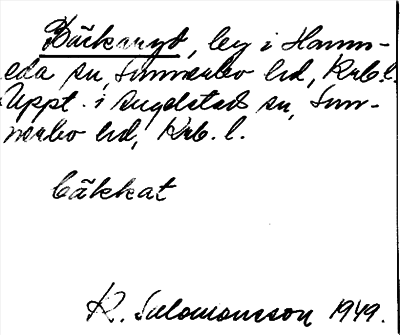 Bäckaryd, beg i Hamn-
eda sn, Sunnerbo hd, Krb.l.
Uppt. i Angelstads sn, Sun-
nerbo hd, Krb. l.
bäkkat
R. Salomonsson 1949.